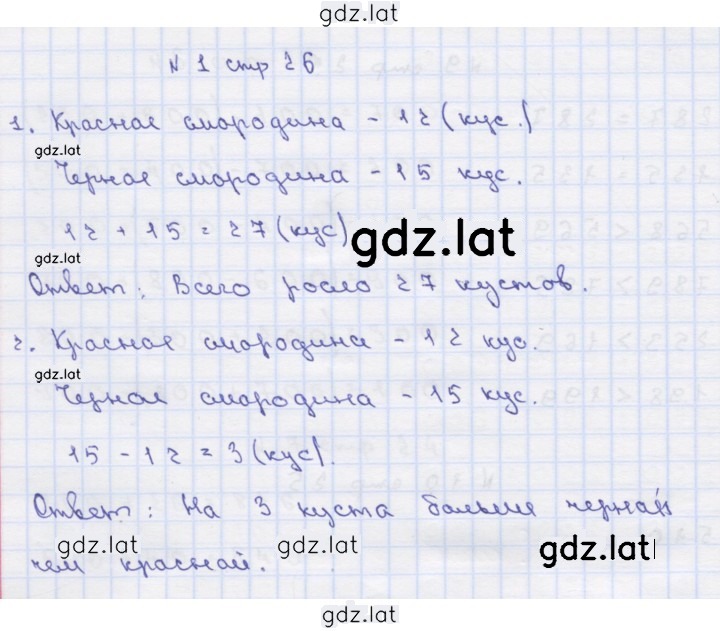 gdz.lat
N 1 стр 26
1. Красная смородина - 12 (кус.)
gdz.lat
Черная смородина - 15 кус.
12 + 15 = 27 (кус)
gdz.lat
Ответ: Всего росло 27 кустов.
2. Красная смородина - 12 кус.
gdz.lat
Черная смородина - 15 кус.
15 - 12 = 3 (кус).
Ответ: На 3 куста больше черной
gdz.lat gdz.lat gdz.lat
чем красной.
gdz.lat